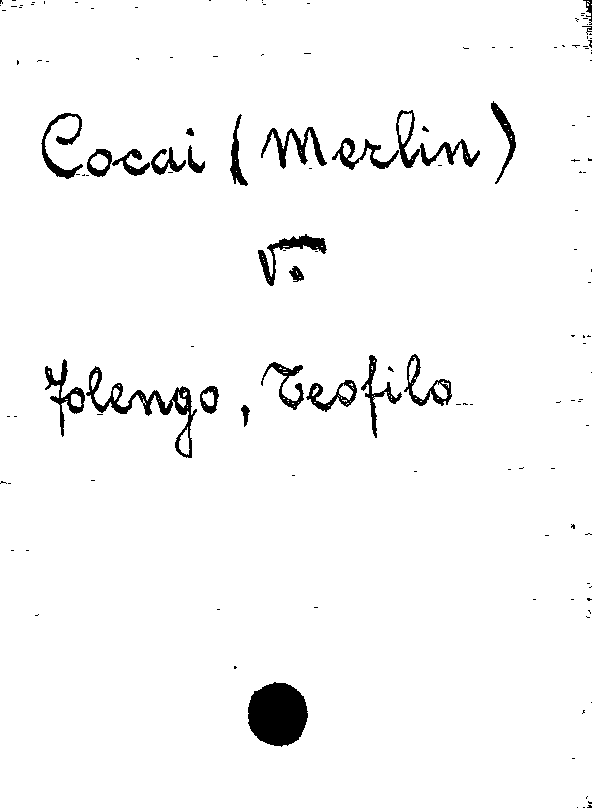 Cocai (Merlin)
V.
Folengo, Teofilo